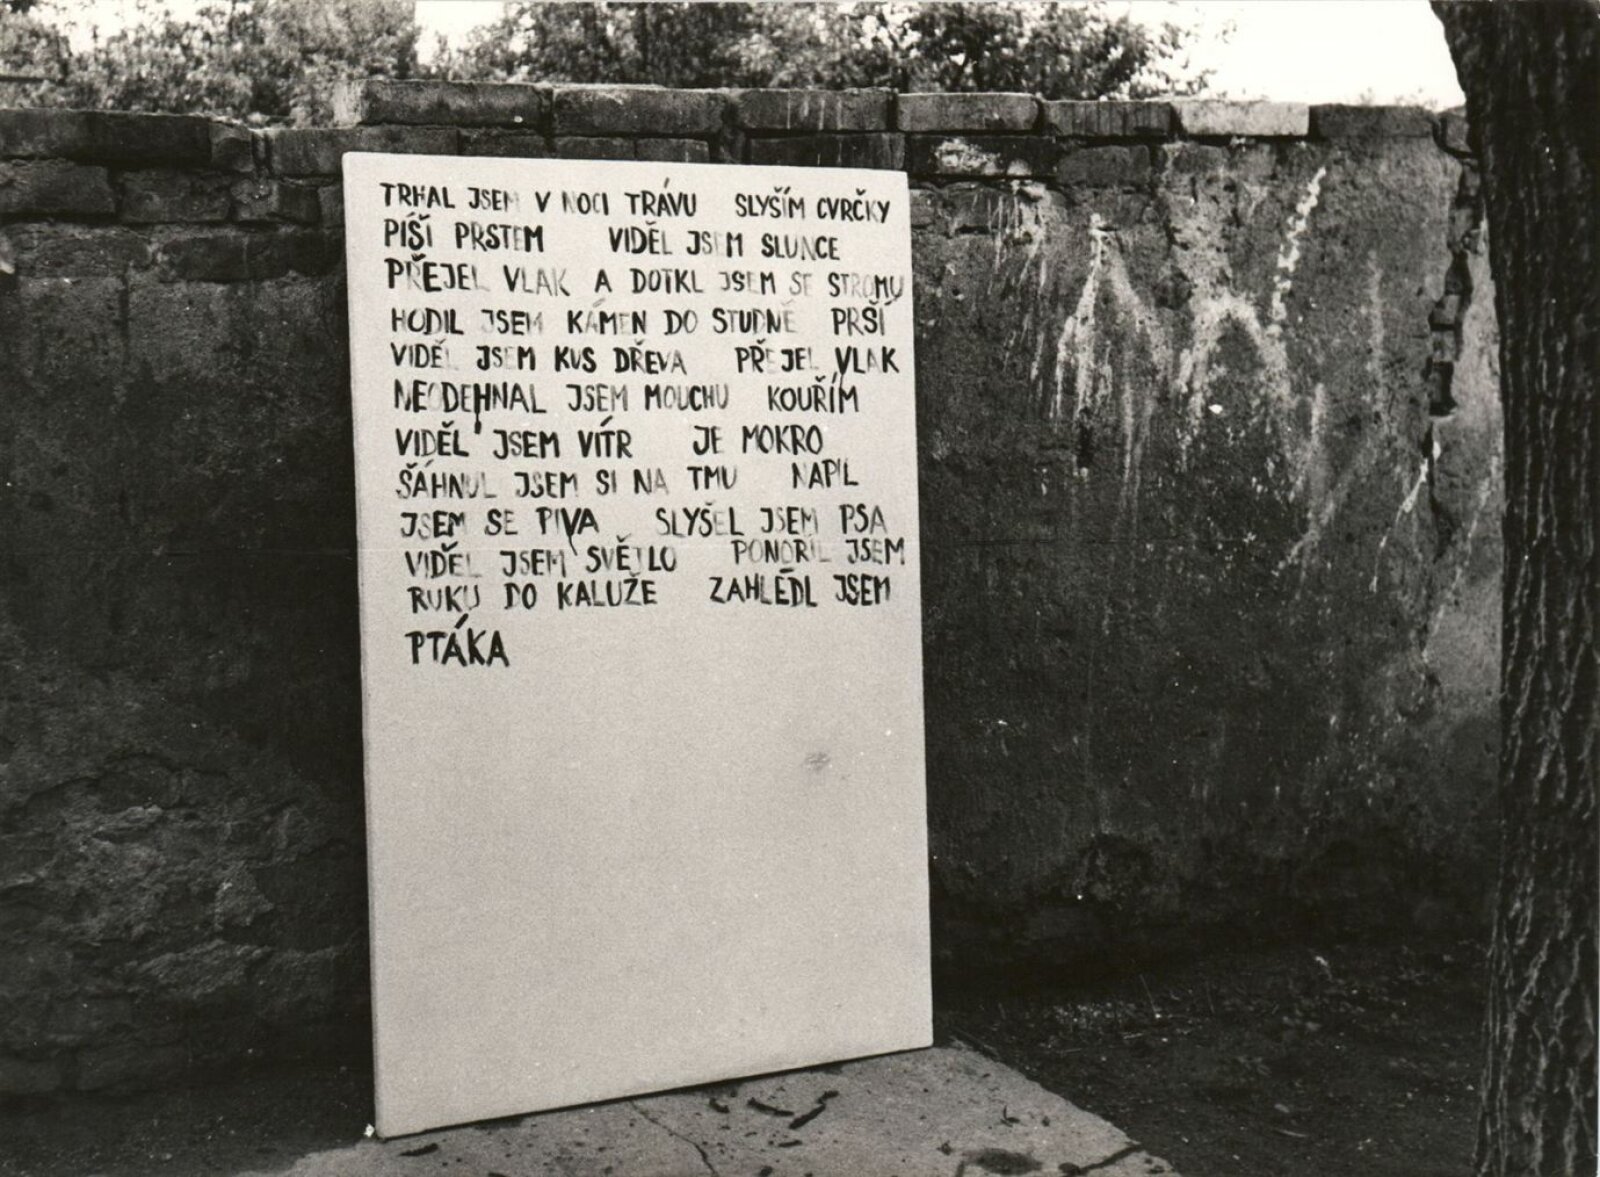 TRHAL JSEM V NOCI TRÁVU SLYŠÍM CVRČKY
PÍŠÍ PRSTEM VIDĚL JSEM SLUNCE
PŘEJEL VLAK A DOTKL JSEM SE STROMU
HODIL JSEM KÁMEN DO STUDNĚ PRŠÍ
VIDĚL JSEM KUS DŘEVA PŘEJEL VLAK
NEODEHNAL JSEM MOUCHU KOUŘÍM
VIDĚL JSEM VÍTR JE MOKRO
ŠÁHNUL JSEM SI NA TMU NAPIL
JSEM SE PIVA SLYŠEL JSEM PSA
VIDĚL JSEM SVĚTLO PONOŘIL JSEM
RUKU DO KALUŽE ZAHLÉDL JSEM
PTÁKA